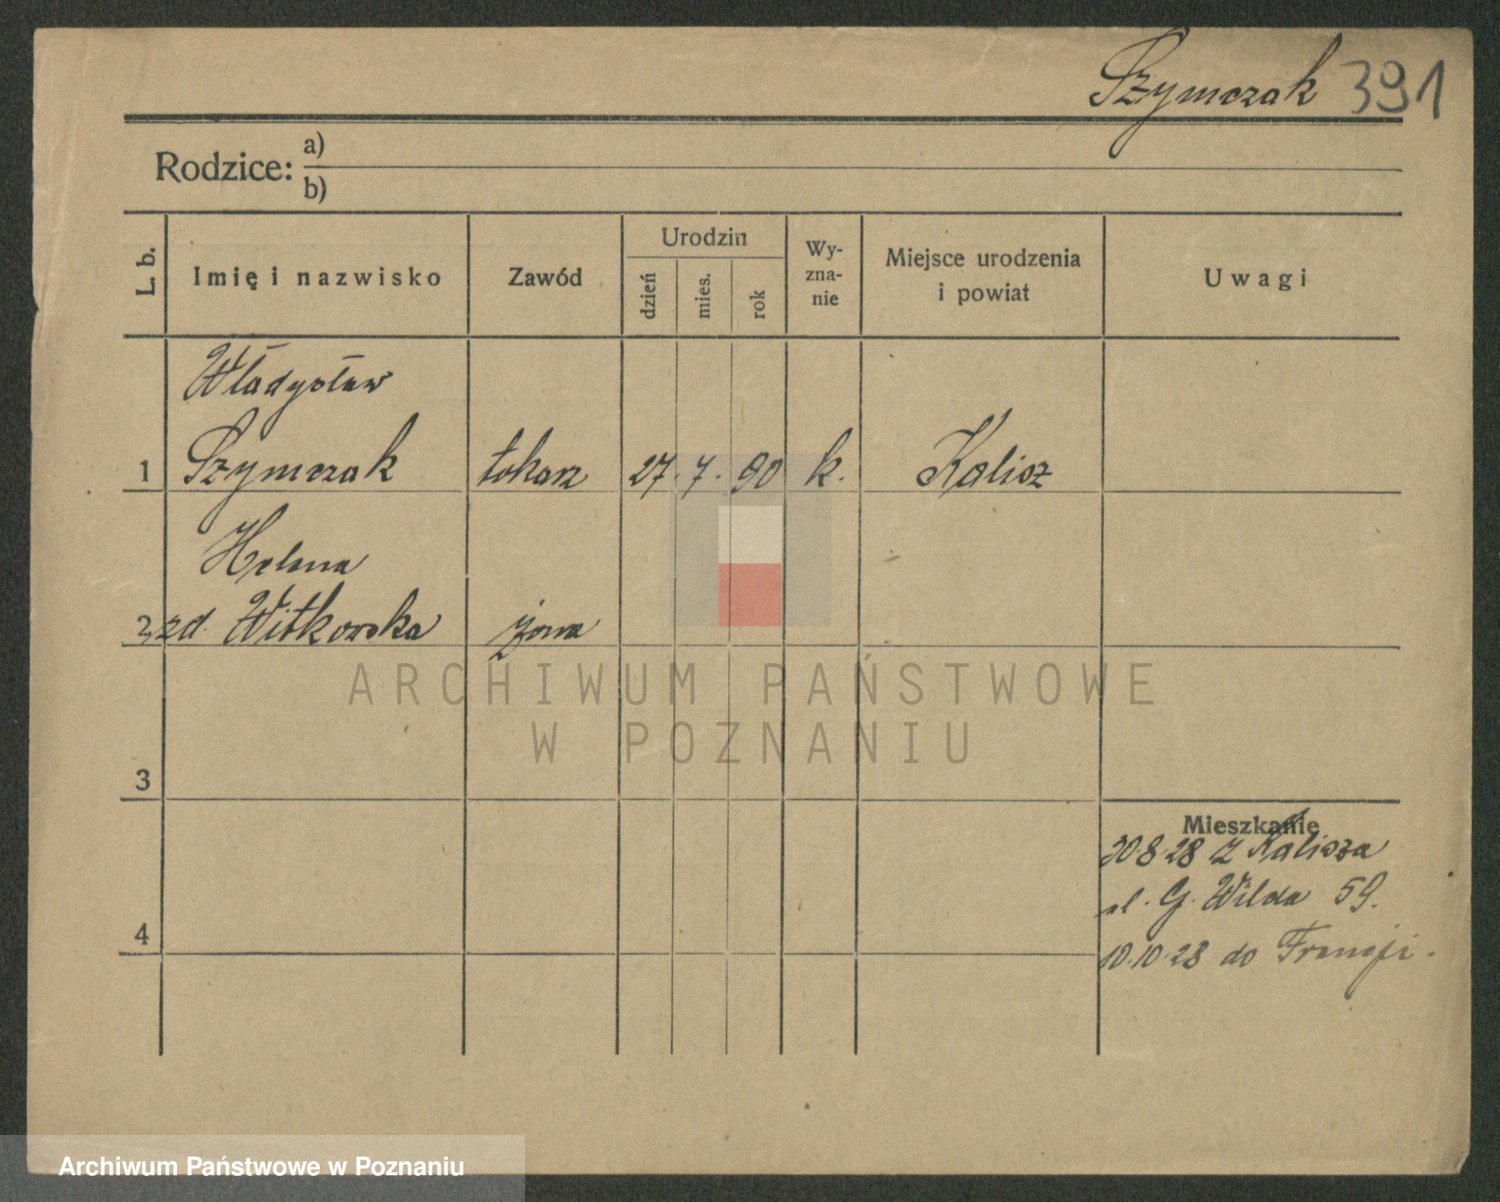 Szymczak 391
Rodzice: a)
b)
L. b.
Imię i nazwisko
Zawód
Urodzin
dzień
mies.
rok
Wy-
zna-
nie
Miejsce urodzenia
i powiat
Uwagi
Władysław
1 Szymczak tokarz 27. 7. 90 k. Kalisz
Helena
2 zd. Witkowska żona
3
Mieszkanie
30.8.28 z Kalisza
ul. G. Wilda 59.
4
10.10.28 do Francji.
ARCHIWUM PAŃSTWOWE
W POZNANIU
Archiwum Państwowe w Poznaniu